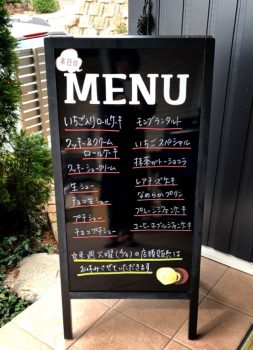 本日の
MENU
いちご入りロールケーキ
クッキー&クリーム
ロールケーキ
クッキーシュークリーム
生シュー
チョコ生シュー
プチシュー
チョコプチシュー
モンブランタルト
いちごスペシャル
抹茶ガトーショコラ
レアチーズケーキ
なめらかプリン
プレーンシフォンケーキ
コーヒーマーブルシフォンケーキ
の店頭販売は
お休みさせていただきます